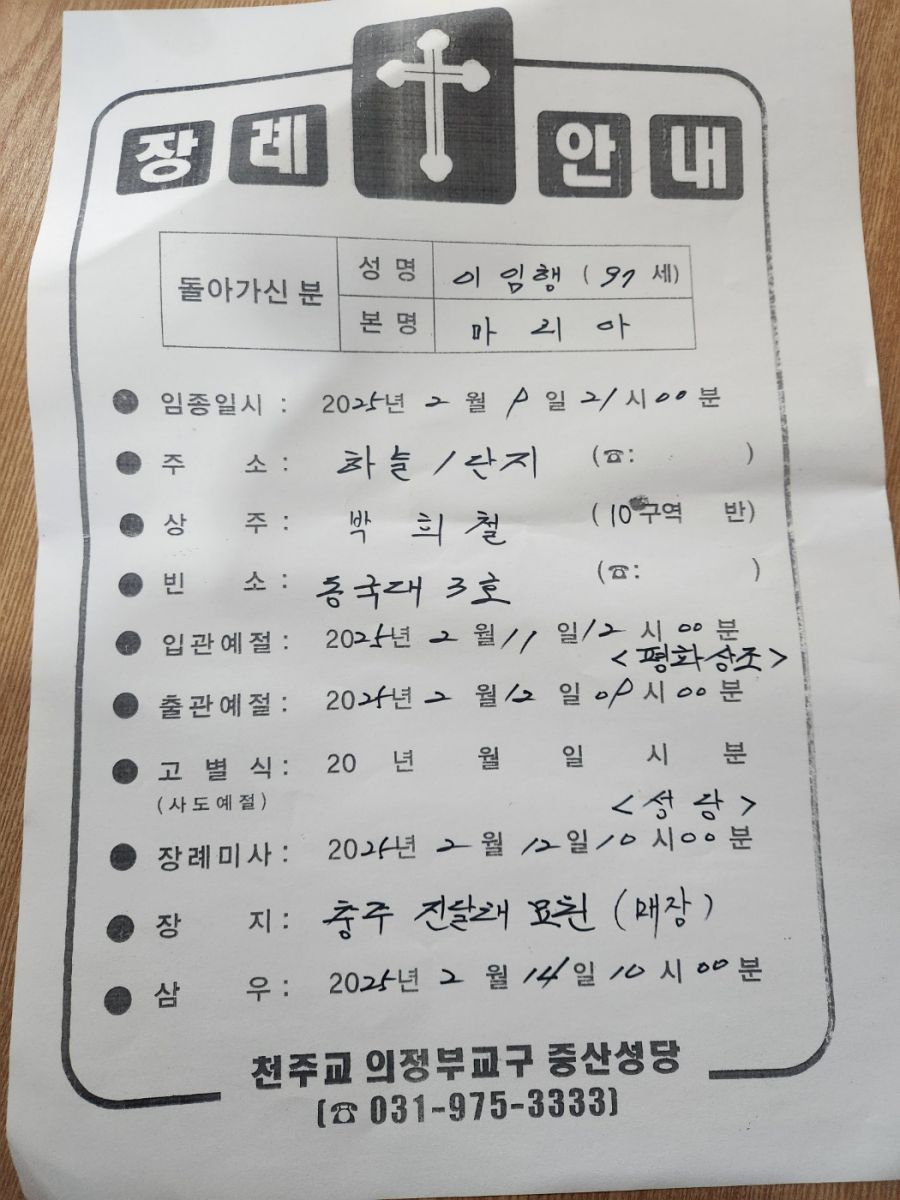 장례 안내
돌아가신 분
성명 이임행 (97세)
본명 마리아
임종일시 : 2025년 2월 9일 21시 00분
주 소 : 하늘 1단지 (☎: )
상 주 : 박희철 (10구역 반)
빈 소 : 동국대 3호 (☎: )
입관예절 : 2025년 2월 11일 12시 00분
<평화상조>
출관예절 : 2025년 2월 12일 09시 00분
고 별 식 : 20 년 월 일 시 분
(사도예절)
<성당>
장례미사 : 2025년 2월 12일 10시 00분
장 지 : 충주 진달래 묘원 (매장)
삼 우 : 2025년 2월 14일 10시 00분
천주교 의정부교구 중산성당
(☎ 031-975-3333)